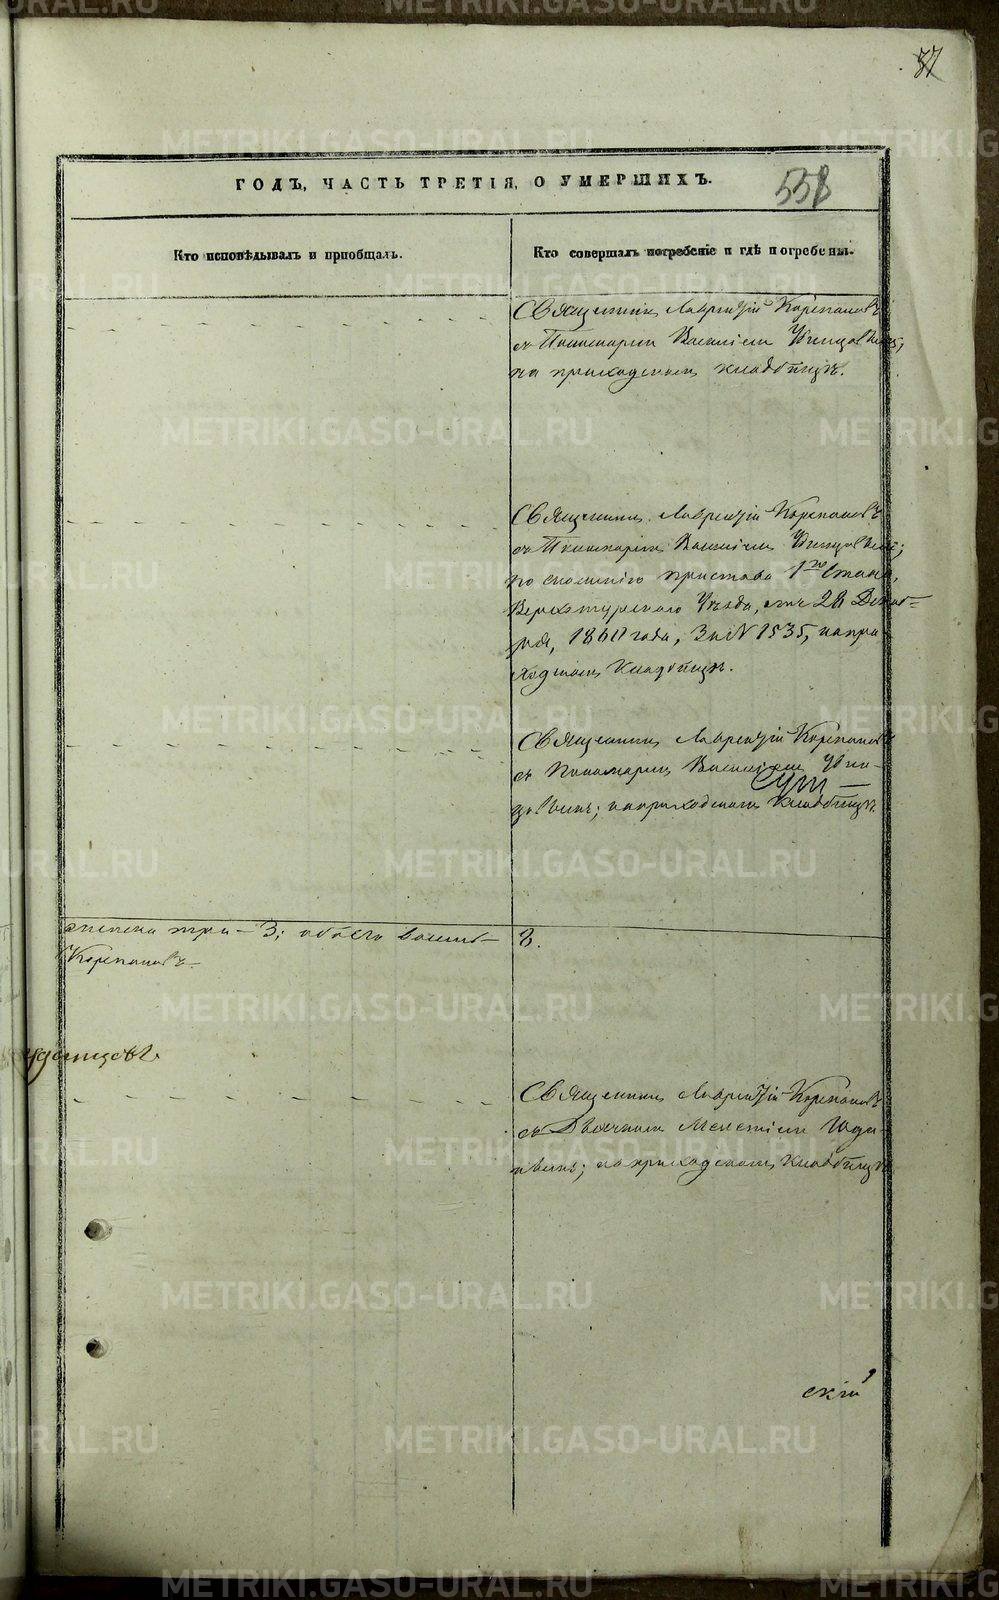 37
ГОДЪ, ЧАСТЬ ТРЕТІЯ, О УМЕРШИХЪ.
558
Кто исповѣдывалъ и пріобщалъ.
Кто совершалъ погребеніе и гдѣ погребены.
Священникъ Лаврентій Корепановъ
съ Пономаремъ Василіемъ
на приходскомъ кладбищѣ.
Священникъ Лаврентій Корепановъ
съ Пономаремъ Василіемъ
по сношенію пристава 1го Стана,
Верхотурскаго Уѣзда, отъ 28 Декаб-
ря, 1860 года, За № 1535, на при-
ходскомъ Кладбищѣ.
Священникъ Лаврентій Корепановъ
съ Пономаремъ Василіемъ
на приходскомъ Кладбищѣ.
три - 3; обоего
3.
Корепановъ
Священникъ Лаврентій Корепановъ
съ Дьячкомъ Мелетіемъ Юди-
нымъ; на приходскомъ Кладбищѣ
скій
METRIKI.GASO-URAL.RU